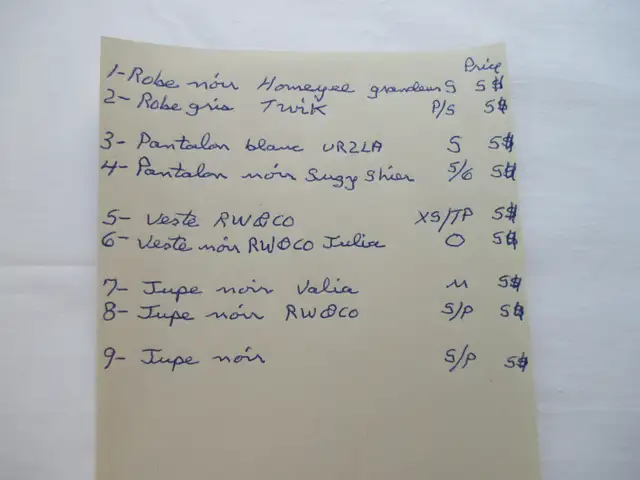 Price
1- Robe nóir Homeyee grandeur S 5$
2- Robe gris TWIK P/S 5$
3- Pantalon blanc URZLA S 5$
4- Pantalon nóir Suzy Shier 5/6 5$
5- Veste RW&CO XS/TP 5$
6- Veste nóir RW&CO Julia O 5$
7- Jupe noir Valia M 5$
8- Jupe nóir RW&CO S/P 5$
9- Jupe nóir S/P 5$